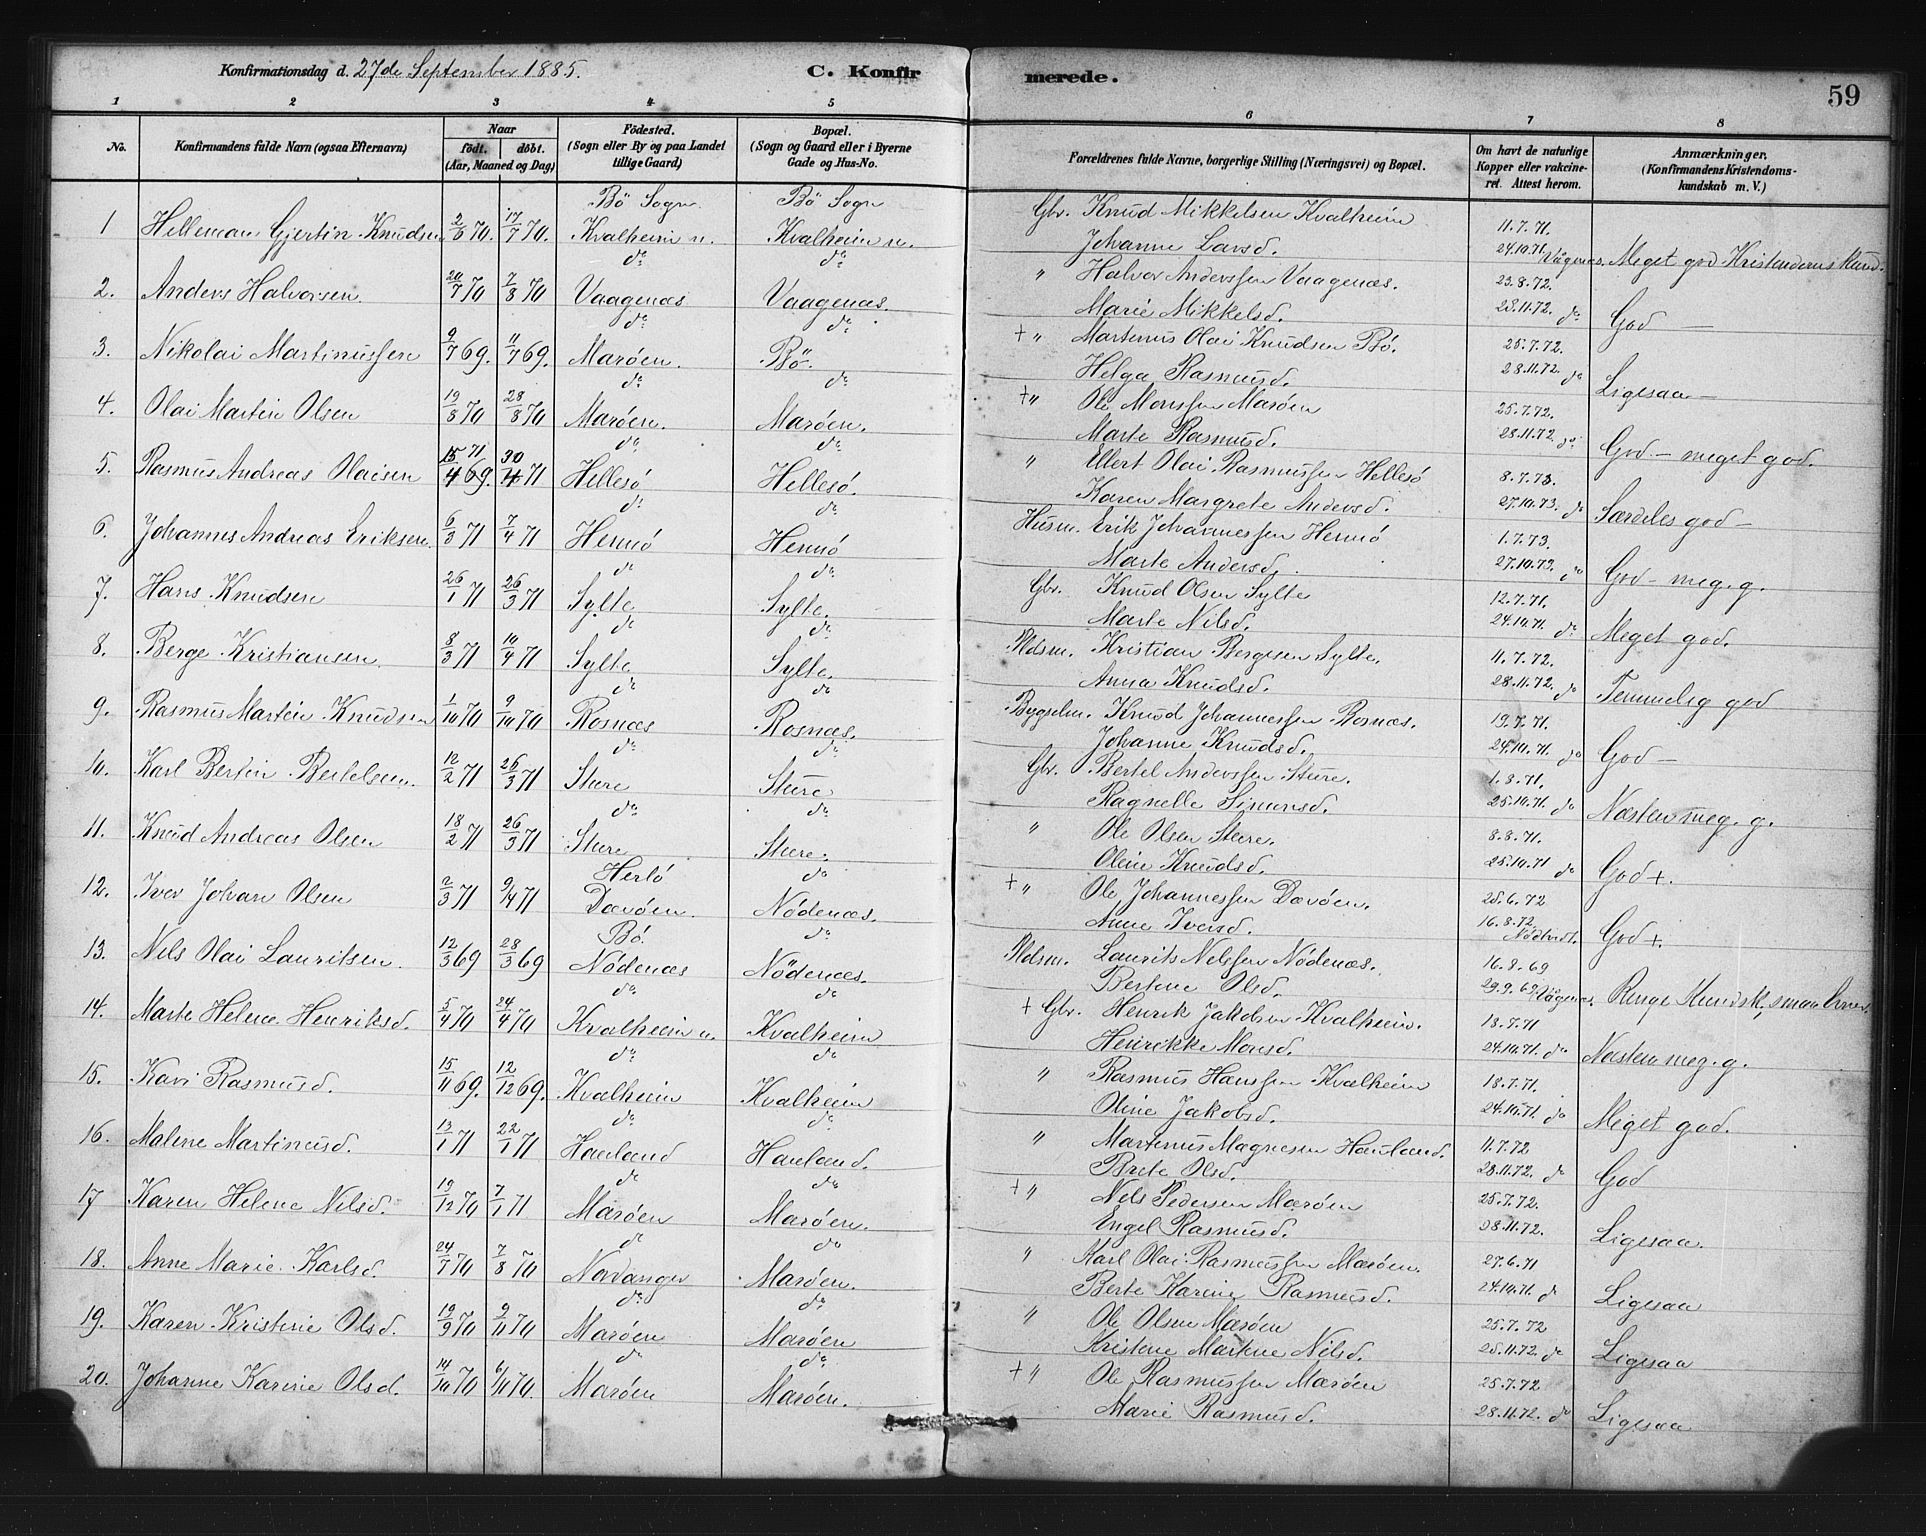 Konfirmationsdag d. 27de September 1885.
C. Konfirmerede.
59
1 2 3 4 5 6 7 8
No. Konfirmandens fulde Navn (ogsaa Efternavn) Naar födt. döbt. (Aar, Maaned og Dag) Födested. (Sogn eller By og paa Landet tillige Gaard) Bopæl. (Sogn og Gaard eller i Byerne Gade og Hus-No. Forældrenes fulde Navne, borgerlige Stilling (Næringsvei) og Bopæl. Om havt de naturlige Kopper eller vakcineret. Attest herom. Anmærkninger, (Konfirmandens Kristendomskundskab m. V.)
Bö Sogn Bö Sogn
1 Helleman Gjertin Knudsen 70. 17/7 70. Kvalheim n. Kvalheim n. Gbr. Knud Mikkelsen Kvalheim 11.7.71.
do do Johanne Larsd. 24.10.71. Vågenæs. Meget god Kristendomskund.
2. Anders Halvorsen 20/7 70 7/8 70 Vaagenæs Vaagenæs. " Halvor Anderssen Vaagenæs. 23.8.72.
do do Marie Mikkelsd. 28.11.72. do God —
3. Nikolai Martinussen 9/7 69. 11/7 69. Maröen. Bö. + " Martinus Olai Knudsen Bö. 25.7.72.
do do Helga Rasmusd. 28.11.72. do Ligesaa —
4. Olai Martin Olsen 19/8 70 28/8 70 Maröen. Maröen. + " Ole Monssen Maröen 25.7.72.
do do Marte Rasmusd. 28.11.72. do God — meget god.
5. Rasmus Andreas Olaisen 15/4 71 69. 30/4 71 Hellesö Hellesö. " Ellert Olai Rasmussen Hellesö 8.7.73.
do do Karen Margrete Andersd. 27.10.73. do Særdeles god —
6. Johannes Andreas Eriksen. 6/3 71 7/4 71 Hennö Hennö Husm. Erik Johannessen Hennö 1.7.73.
do do Marte Andersd. 27.10.73. do God — meg. g.
7. Hans Knudsen 26/1 71 26/3 71 Sylte Sylte. Gbr. Knud Olsen Sylte 12.7.71.
do do Marte Nilsd. 24.10.71. do Meget god.
8. Berge Kristiansen. 8/3 71 10/4 71 Sylte Sylte. Pldsm. Kristian Bergesen Sylte. 11.7.72.
do do Anna Knudsd. 28.11.72. do Temmelig god
9. Rasmus Martin Knudsen 1/10 70 9/10 70 Rosnæs Rosnæs. Bygselm. Knud Johannessen Rosnæs. 19.7.71.
do do Johanne Knudsd. 24.10.71. do God —
10. Karl Bertin Bertelsen. 12/2 71 26/3 71 Sture Sture Gbr. Bertel Anderssen Sture. 1.8.71.
do do Ragnelle Simonsd. 25.10.71. do Næsten meg. g.
11. Knud Andreas Olsen 18/2 71 26/3 71 Sture Sture. " Ole Olsen Sture. 8.8.71.
Herlö do Oline Knudsd. 25.10.71 do God +.
12. Iver Johan Olsen 2/3 71 9/4 71 Davöen. Nödenæs. + " Ole Johannessen Davöen. 25.6.72
Bö. do Anne Iversd. 16.8.72. Nödtvedt. God +.
13. Nels Olai Lauritsen 12/3 69 28/3 69 Nödenæs Nödenæs. Pldsm. Laurits Nelssen Nödenæs. 16.8.69
do do Bertine Olsd. 29.9.69 Vågenæs. Ringe Kundsk,
14. Marte Helene Henriksd. 5/4 70 24/4 70 Kvalheim n. Kvalheim + Gbr. Henrik Jakobsen Kvalheim. 18.7.71
do do Henrikke Monsd. 24.10.71. do Næsten meg. g.
15. Kari Rasmusd. 15/11 69. 12/12 69. Kvalheim Kvalheim " Rasmus Hanssen Kvalheim 18.7.71.
do do Oline Jakobsd. 24.10.71. do Meget god.
16. Malene Martinusd. 13/1 71 22/1 71 Hauland Hauland. " Martinus Magnesen Hauland. 11.7.72
do do Brite Olsd. 28.11.72. do God
17 Karen Helene Nilsd. 19/12 70 7/1 71 Maröen Maröen. + " Nels Pedersen Maröen 25.7.72.
do do Engel Rasmusd. 28.11.72. Ligesaa.
18. Anne Marie Karlsd. 24/7 70 7/8 70 Nordanger Maröen. " Karl Olai Rasmussen Maröen. 27.6.71
do do Berte Karine Rasmusd. 24.10.71. do Ligesaa
19. Karen Kristine Olsd. 19/9 70 9/11 70 Maröen Maröen " Ole Olsen Maröen 25.7.72
do do Kristine Martine Nilsd. 28.11.72. do Ligesaa
20. Johanne Karine Olsd. 14/10 70 6/11 70. Maröen Maröen. + " Ole Rasmussen Maröen 25.7.72
Marie Rasmusd. 28.11.72. do Ligesaa